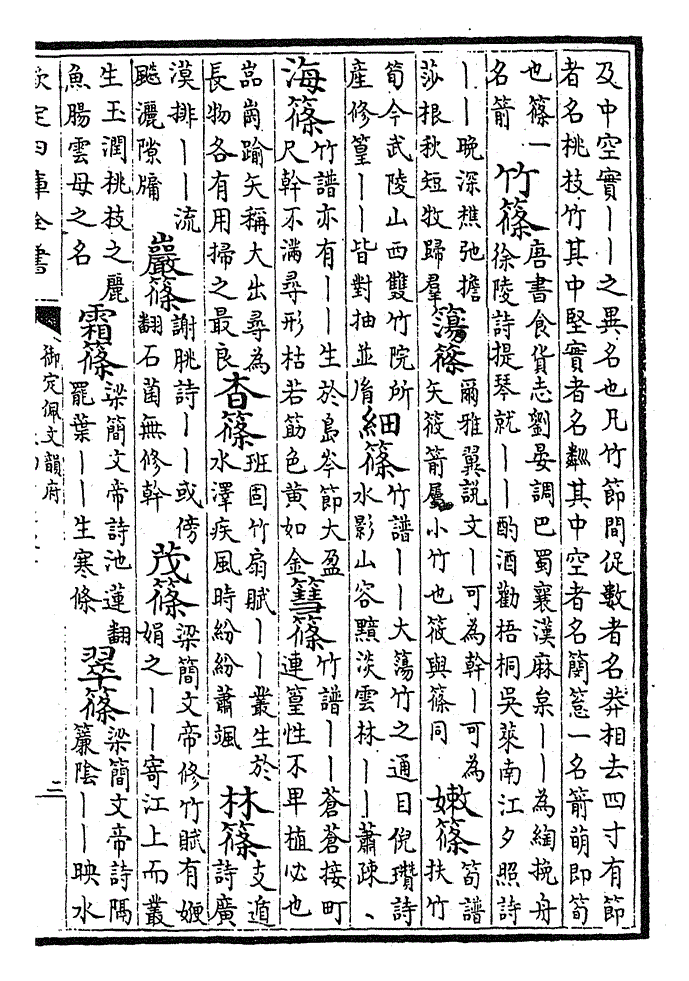 及中空實丨丨之異名也凡竹節間促數者名莽相去四寸有節
者名桃枝竹其中堅實者名其中空者名䕞䇾一名箭萌即筍
也篠一
名箭
竹篠
唐書食貨志劉晏調巴蜀襄漢麻枲丨丨為綯挽舟
徐陵詩提琴就丨丨酌酒勸梧桐吳萊南江夕照詩
丨丨晚深樵弛擔
莎根秋短牧歸羣
簜篠
爾雅翼説文丨可為幹丨可為
矢筱箭屬小竹也筱與篠同
嫩篠
筍譜
扶竹
筍今武陵山西雙竹院所
產修篁丨丨皆對抽並胤
細篠
竹譜丨丨大簜竹之通目倪瓚詩
水影山容黯淡雲林丨丨蕭疎丶
海篠
竹譜亦有丨丨生於島岑節大盈
尺幹不滿尋形枯若筋色黄如金
篲篠
竹譜丨丨蒼蒼接町
連篁性不卑植必也
嵓崗踰矢稱大出尋為
長物各有用掃之最良
杳篠
班固竹扇賦丨丨叢生於
水澤疾風時紛紛蕭颯
林篠
支遁
詩廣
漠排丨丨流
飈灑隙牗
巖篠
謝朓詩丨丨或傍
翻石菌無修幹
茂篠
梁簡文帝修竹賦有㛹
娟之丨丨寄江上而叢
生玉潤桃枝之麗
魚腸雲母之名
霜篠
梁簡文帝詩池蓮翻
罷葉丨丨生寒條
翠篠
梁簡文帝詩隔
簾陰丨丨映水
欽定四庫全書
御定佩文韻府
二